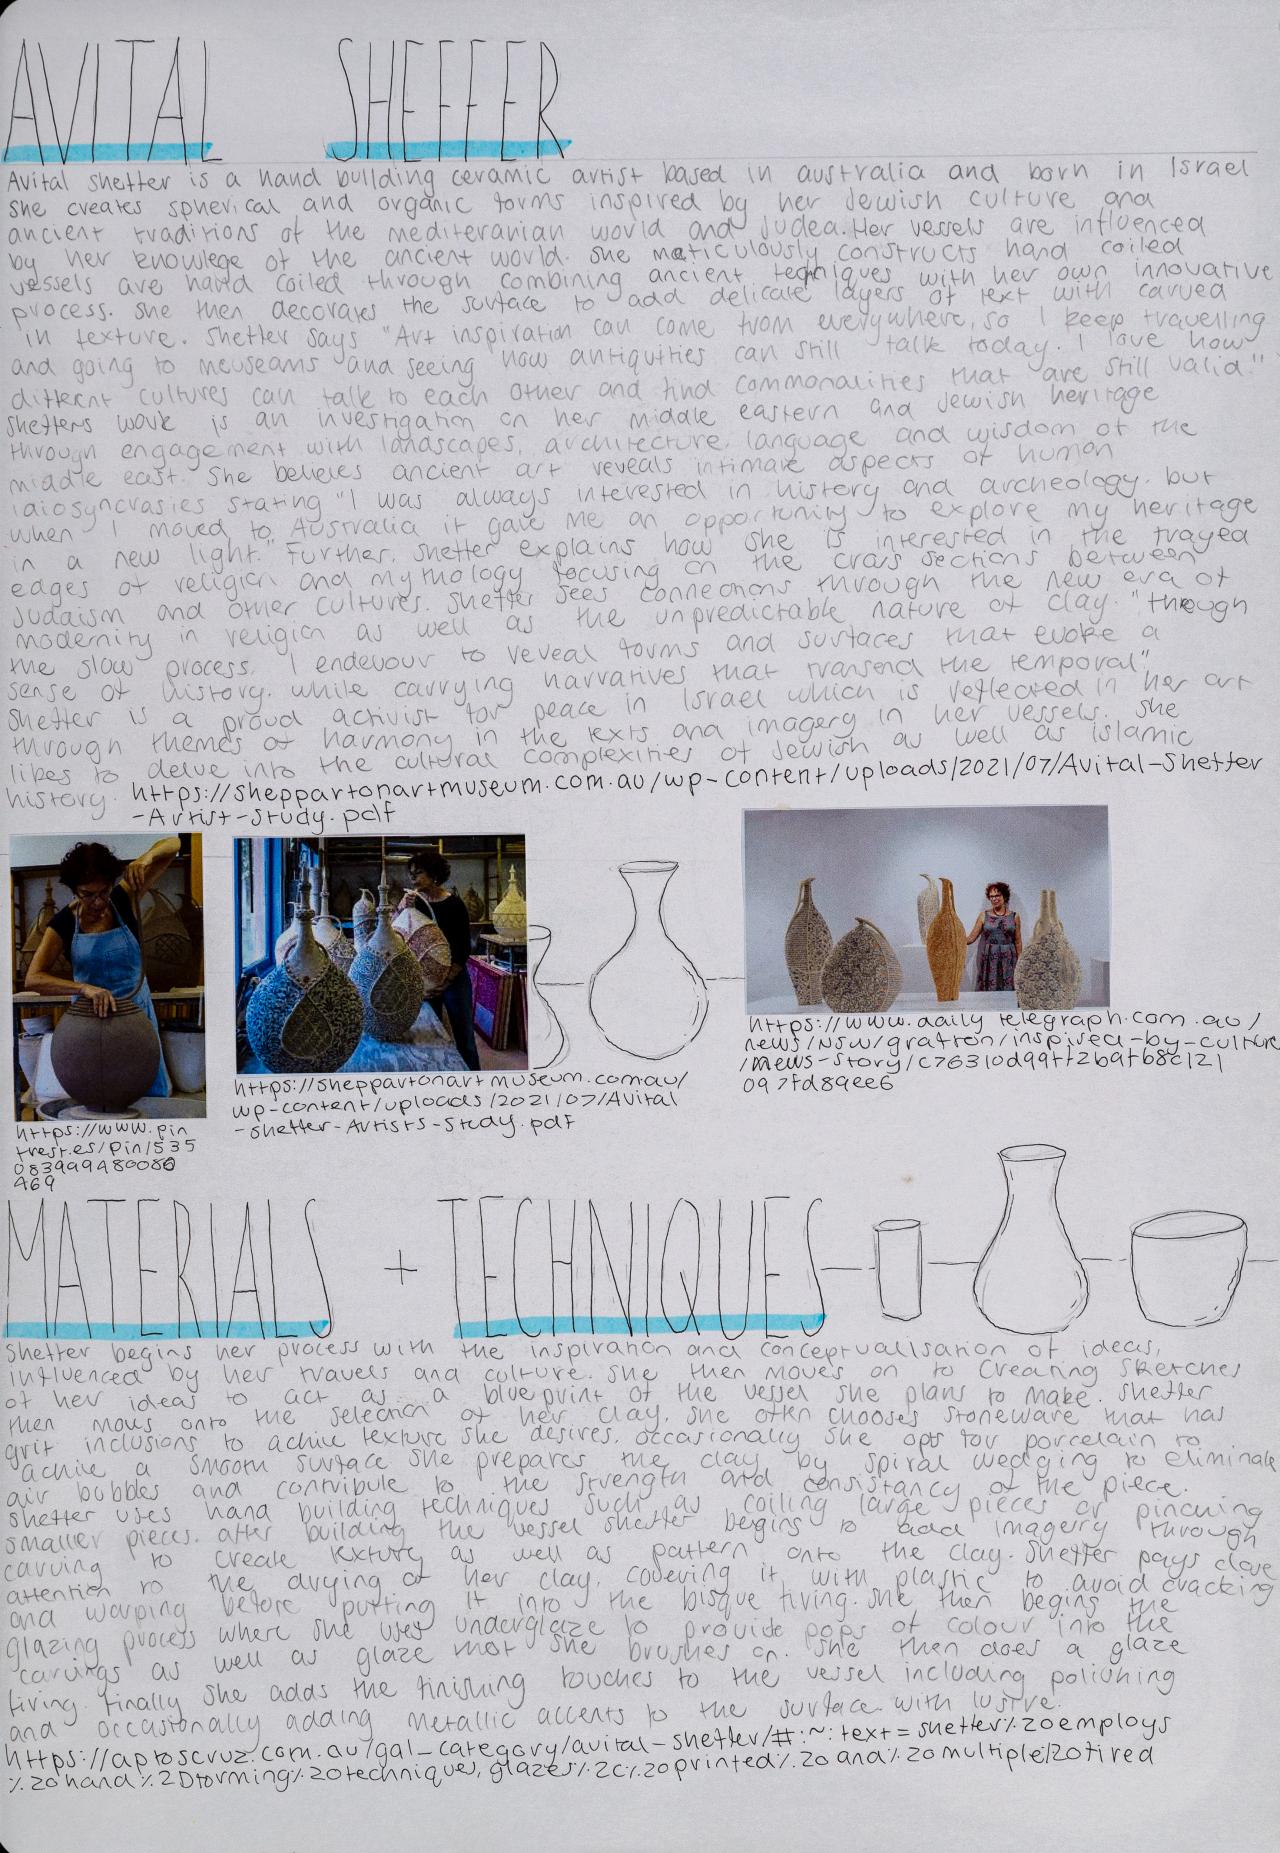 AVITAL SHEFFER
Avital sheffer is a hand building ceramic artist based in australia and born in Israel
she creates spherical and organic forms inspired by her Jewish culture and
ancient traditions of the mediteranian world and Judea. Her vessels are influenced
by her knowlege of the ancient world. She meticulously constructs hand coiled
vessels are hand coiled through combining ancient techniques with her own innovative
process. she then decorates the surface to add delicate layers of text with carved
in texture. Sheffer says "Art inspiration can come from everywhere, so I keep travelling
and going to meuseams and seeing how antiquities can still talk today. I love how
different cultures can talk to each other and find commonalities that are still valid."
Sheffers work is an investigation on her middle eastern and Jewish heritage
through engagement with landscapes, architecture, language and wisdom of the
middle east. She believes ancient art reveals intimate aspects of human
idiosyncrasies stating "I was always interested in history and archeology. but
when I moved to Australia it gave me an opportunity to explore my heritage
in a new light." Further, Sheffer explains how she is interested in the frayed
edges of religion and mythology focusing on the cross sections between
Judaism and other cultures. Sheffer sees connections through the new era of
modernity in religion as well as the unpredictable nature of clay. "through
the slow process, I endevour to reveal forms and surfaces that evoke a
sense of history. while carrying narratives that transend the temporal"
Sheffer is a proud activist for peace in Israel which is reflected in her art
through themes of harmony in the texts and imagery in her vessels. She
likes to delve into the cultural complexities of Jewish as well as islamic
history. https://sheppartonartmuseum.com.au/wp-content/uploads/2021/07/Avital-Sheffer
-Artist-Study.pdf
https://www.pin
trest.es/pin/535
083999480080
469
https://sheppartonartmuseum.com.au/
wp-content/uploads/2021/07/Avital
-Sheffer-Artists-Study.pdf
https://www.daily telegraph.com.au/
news/NSW/grafton/inspired-by-culture
/news-story/c76310d99ff2b9fb8c121
097fd89ee6
MATERIALS + TECHNIQUES
Sheffer begins her process with the inspiration and conceptualisation of ideas,
influenced by her travels and culture. She then moves on to creating sketches
of her ideas to act as a blueprint of the vessel she plans to make. Sheffer
then moves onto the selection of her clay, she often chooses stoneware that has
grit inclusions to achive texture she desires, occasionally she opts for porcelain to
achive a smooth surface She prepares the clay by spiral wedging to eliminate
air bubbles and contribute to the strength and consistancy of the piece.
Sheffer uses hand building techniques such as coiling large pieces or pinching
smaller pieces. after building the vessel sheffer begins to add imagery through
carving to create texture as well as pattern onto the clay. Sheffer pays close
attention to the drying of her clay, covering it with plastic to avoid cracking
and warping before putting it into the bisque firing. She then begins the
glazing process where she uses underglaze to provide pops of colour into the
carvings as well as glaze that she brushes on. She then does a glaze
firing. Finally she adds the finishing touches to the vessel including polishing
and occasionally adding metallic accents to the surface with lustre.
https://aptoscruz.com.au/gal_category/avital-sheffer/#:~:text=sheffer%20employs
%20hand%2Dforming%20techniques, glazes%2C%20printed%20and%20multiple%20fired